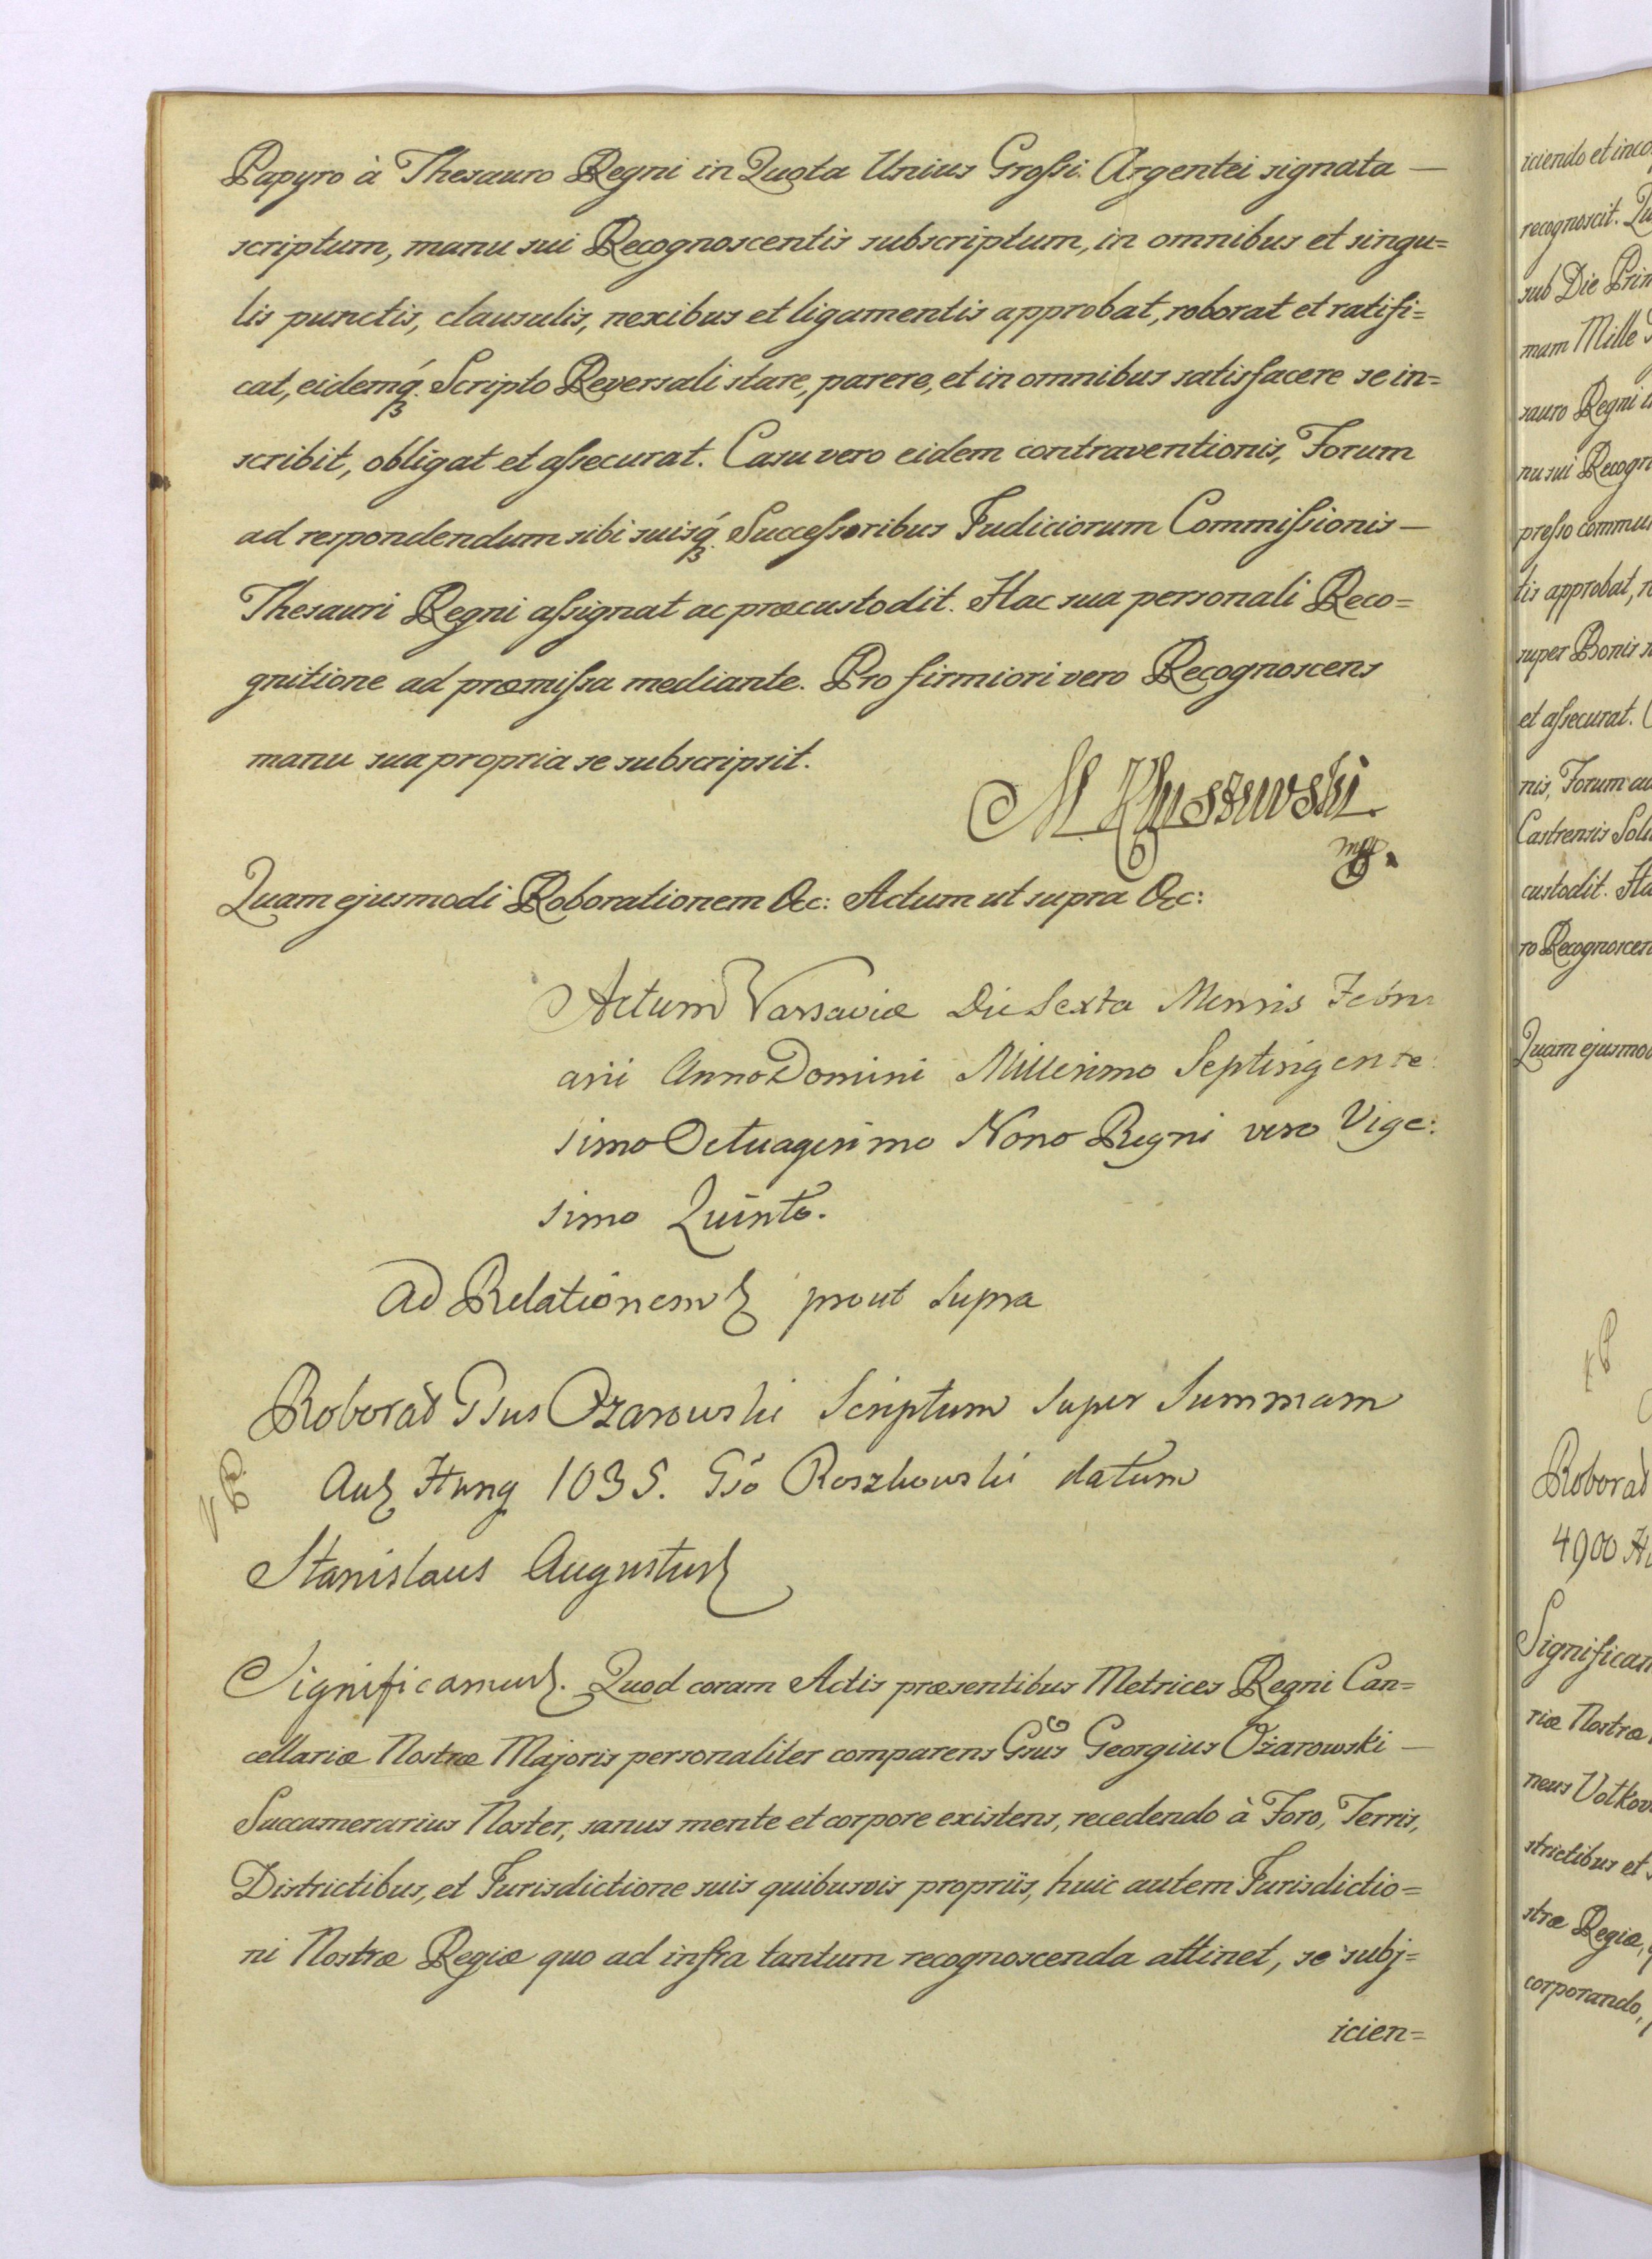 Papyro à Thesauro Regni in Quota Unius Grossi Argentei signata —
scriptum, manu sui Recognoscentis subscriptum, in omnibus et singu=
lis punctis, clausulis, nexibus et ligamentis approbat, roborat et ratifi=
cat, eidemq́ Scripto Reversali stare, parere, et in omnibus satisfacere se in=
scribit, obligat et assecurat. Casu vero eidem contraventionis, Forum
ad respondendum sibi suisq́ Successoribus Judiciorum Commissionis —
Thesauri Regni assignat ac præcustodit. Hac sua personali Reco=
gnitione ad præmissa mediante. Pro firmiori vero Recognoscens
manu sua propria se subscripsit.
M Kluszewski
mp.
Quam ejusmodi Roborationem &c: Actum ut supra &c:
Actum Varsaviæ Die Sexta Mensis Febru
arii Anno Domini Millesimo Septingente:
simo Octuagesimo Nono Regni vero Vige:
simo Quinto.
Ad Relationem prout supra
Roborat Gsus Ozarowski Scriptum super Summam
Hung 1035. Gsó Roszkowski datum
Stanislaus Augustus
Significamus. Quod coram Actis præsentibus Metrices Regni Can=
cellariæ Nostræ Majoris personaliter comparens Gsus Georgius Ożarowski —
Succamerarius Noster, sanus mente et corpore existens, recedendo à Foro, Terris,
Districtibus, et Jurisdictione suis quibusvis propriis, huic autem Jurisdictio=
ni Nostræ Regiæ quo ad infra tantum recognoscenda attinet, se subj=
icien=
iciendo et inco
recognoscit. Qu
sub Die Prim
mam Mille
sauro Regni i
nu sui Recogn
presso commu
tis approbat, r
super Bonis s
et assecurat. C
nis, Forum au
Castrensis Soli
custodit. Ha
ro Recognoscen
Quam ejusmo
Roborat
4900 H
Significam
riæ Nostræ
neus Votkov
strictibus et s
stræ Regiæ, q
corporando,